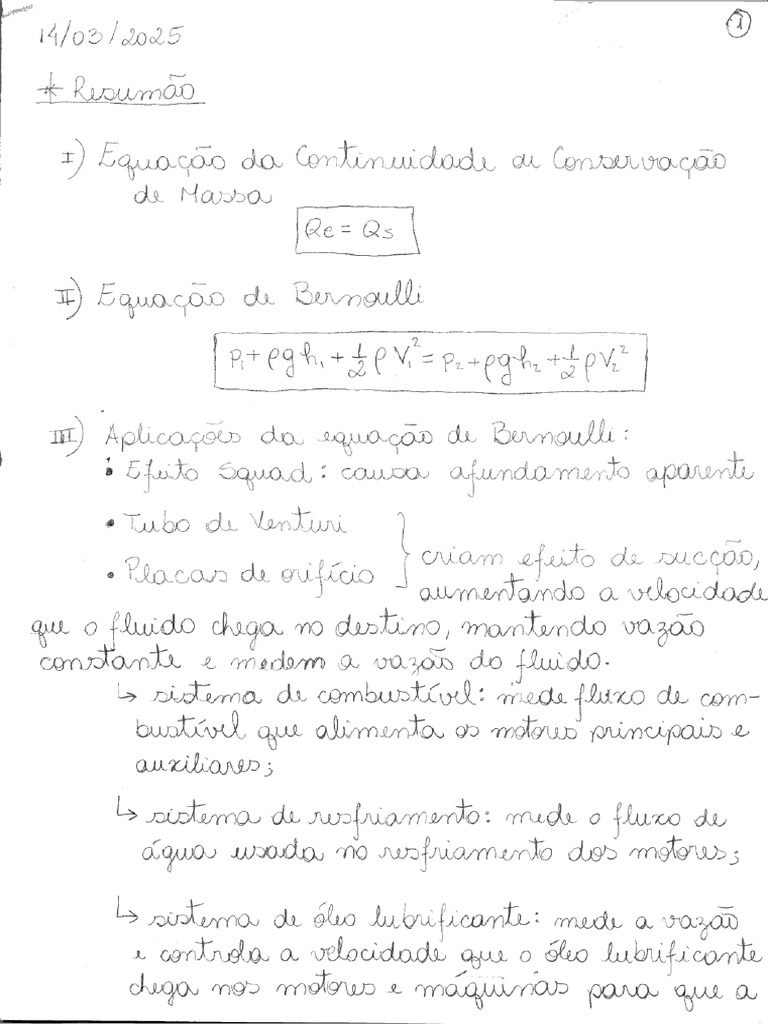 1
14/03/2025
* Resumão
I) Equação da Continuidade ou Conservação
de Massa
Qe = Qs
II) Equação de Bernoulli
P₁ + ρgh₁ + 1/2 ρV₁² = P₂ + ρgh₂ + 1/2 ρV₂²
III) Aplicações da equação de Bernoulli:
• Efeito Squad: causa afundamento aparente
• Tubo de Venturi
• Placas de orifício } criam efeito de sucção,
aumentando a velocidade
que o fluido chega no destino, mantendo vazão
constante e medem a vazão do fluido.
↳ sistema de combustível: mede fluxo de com-
bustível que alimenta os motores principais e
auxiliares;
↳ sistema de resfriamento: mede o fluxo de
água usada no resfriamento dos motores;
↳ sistema de óleo lubrificante: mede a vazão
e controla a velocidade que o óleo lubrificante
chega nos motores e máquinas para que a